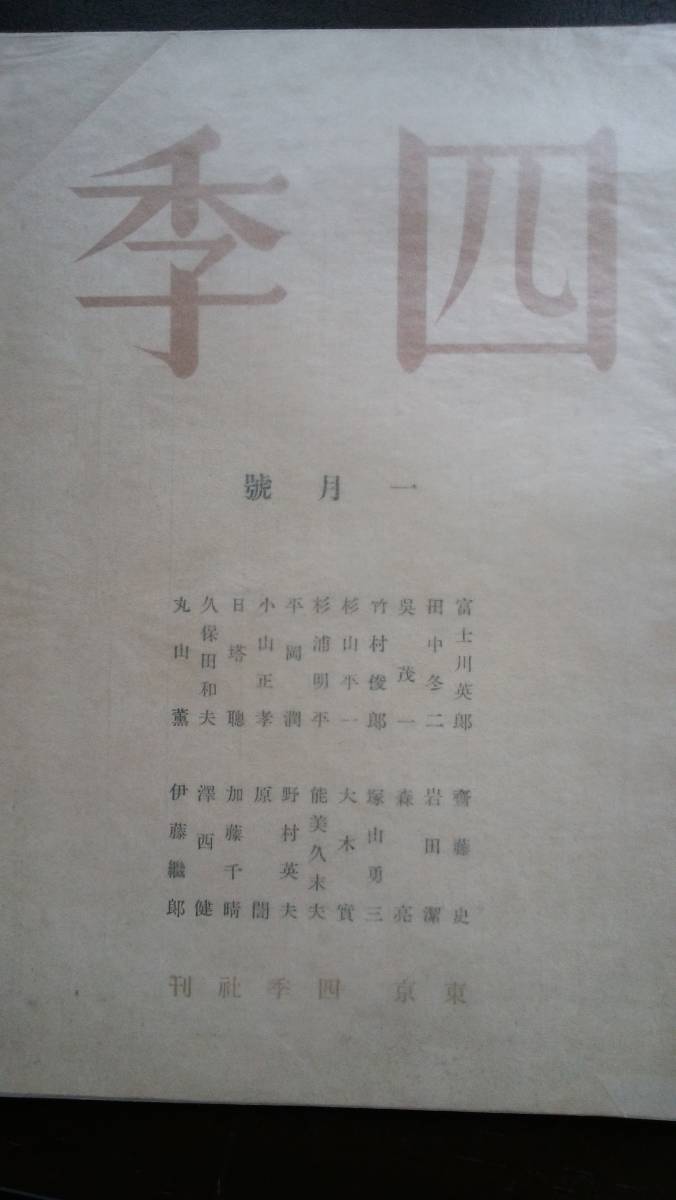 四季
一月號
富士川英郎
田中冬二
吳茂一
竹村俊郎
杉山平一
杉浦明平
平岡潤
小山正孝
日塔聰
久保田和夫
丸山薰
齋藤史
岩田潔
森亮
塚山勇三
大木實
能美久末夫
野村英夫
原誾
加藤千晴
澤西健
伊藤繼郎
東京四季社刊